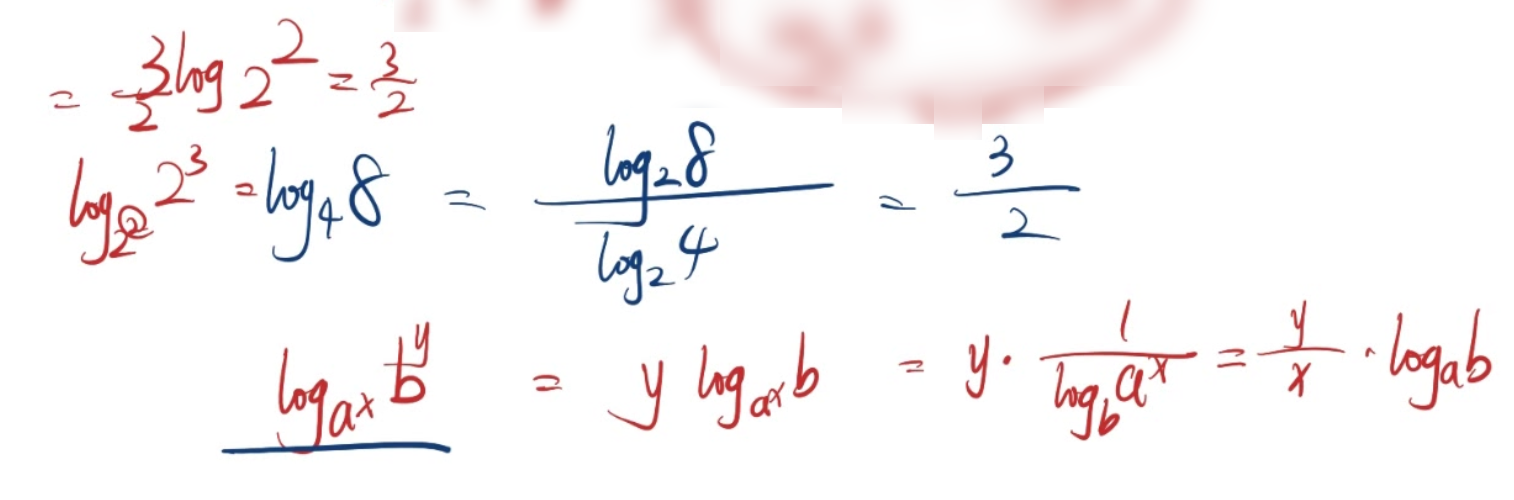 = 3/2 log 2² = 3/2
log_{2²} 2³ = log₄ 8 = log₂ 8 / log₂ 4 = 3/2
log_{aˣ} bʸ = y log_{aˣ} b = y · 1/(log_b aˣ) = y/x · log_a b